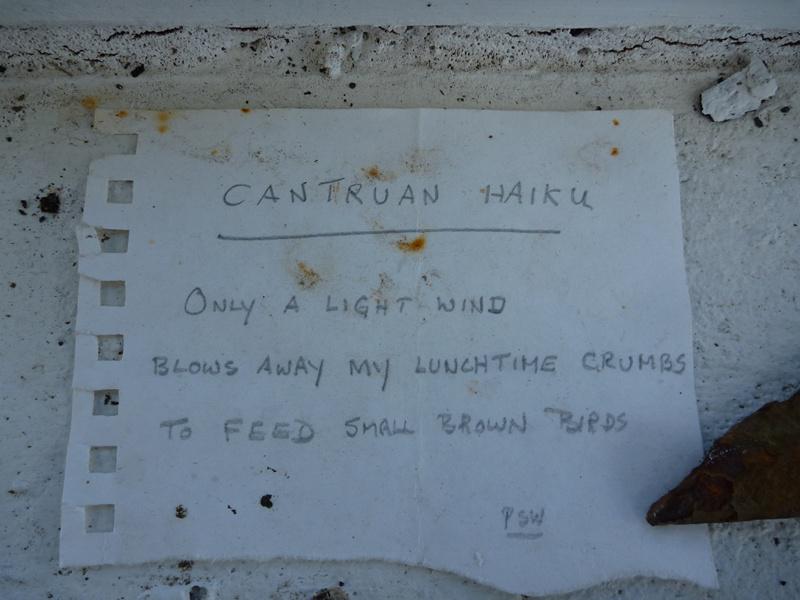 CANTRUAN HAIKU
ONLY A LIGHT WIND
BLOWS AWAY MY LUNCHTIME CRUMBS
TO FEED SMALL BROWN BIRDS
PSW